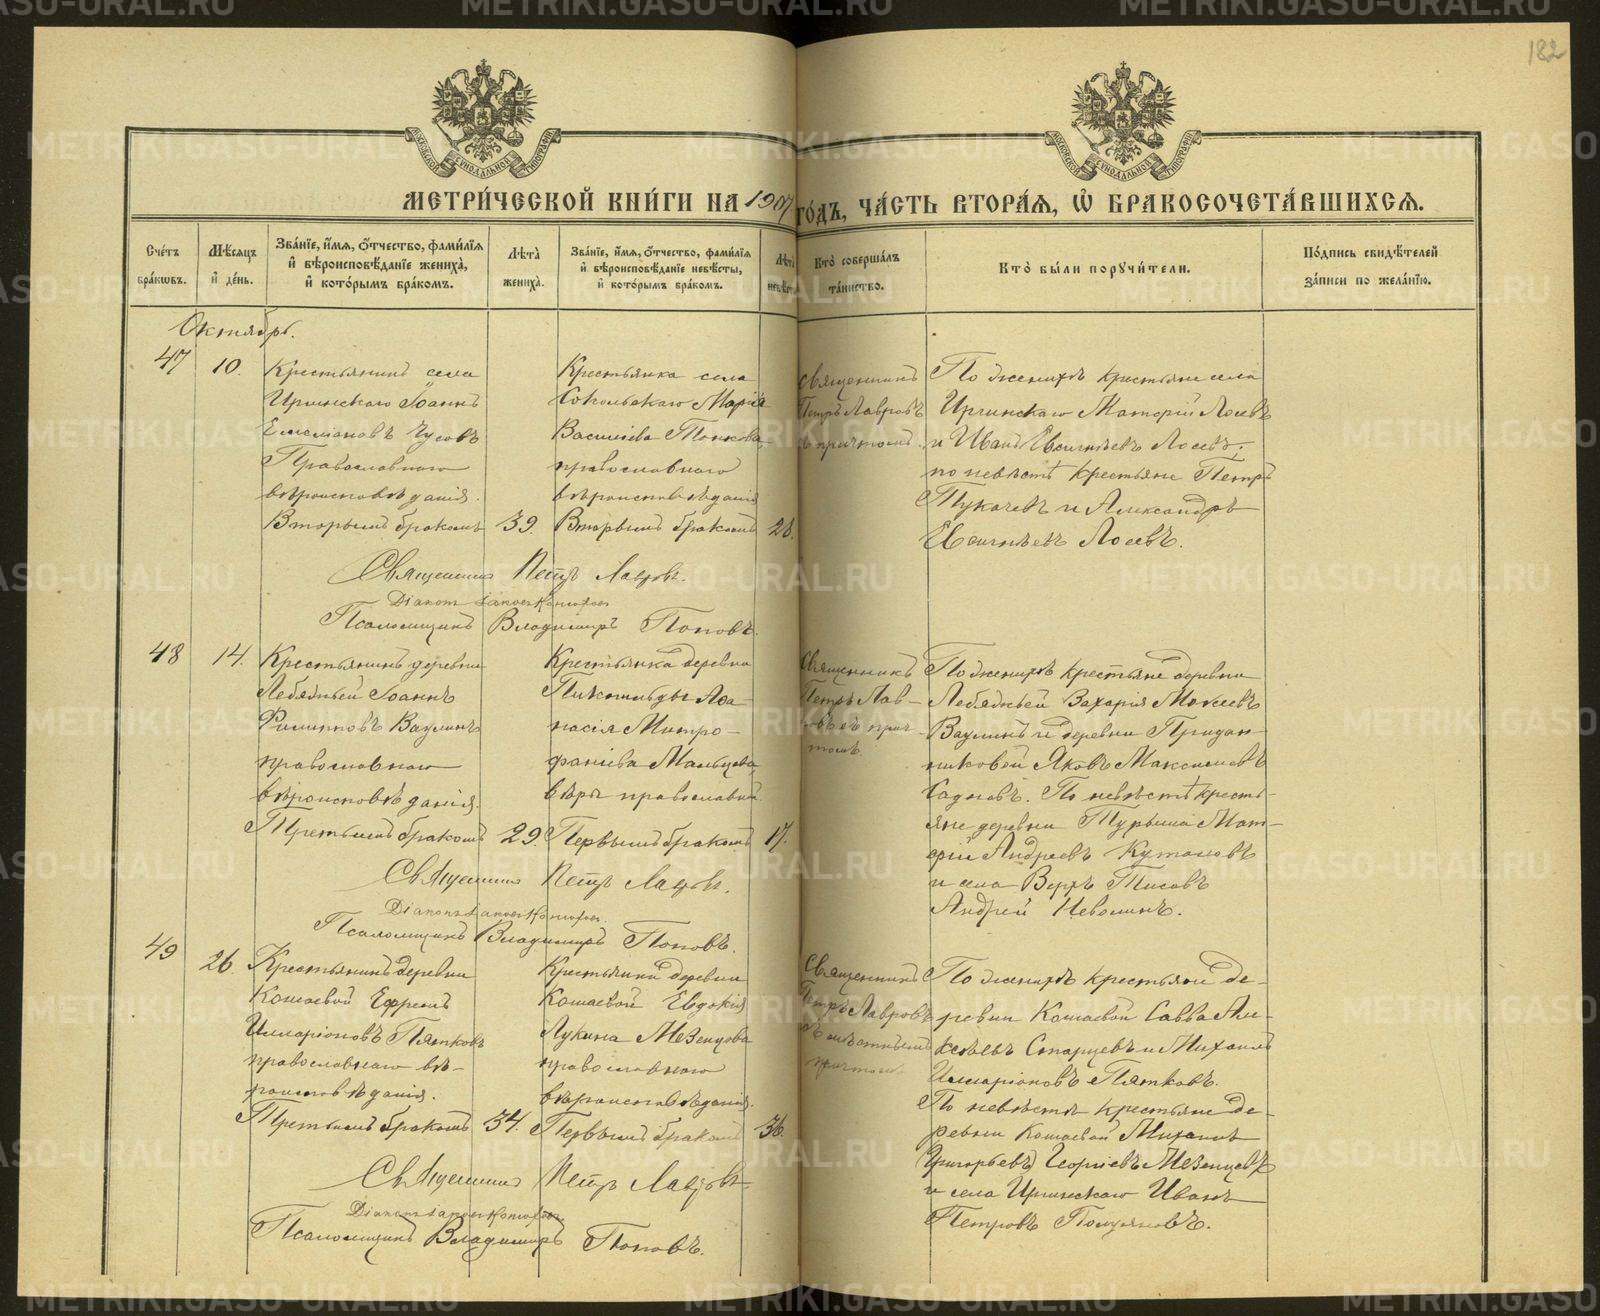 182
МЕТРИ́ЧЕСКОЙ КНИ́ГИ НА 1907 ГО́ДЪ, ЧА́СТЬ ВТОРА́Я, Ѡ҆ БРАКОСОЧЕТА́ВШИХСЯ.
Сче́тъ бра́кѡвъ.
Мѣ́сѧцъ и҆ де́нь.
Зва́нїе, и҆́мѧ, ѻ҆́тчество, фами́лїѧ и҆ вѣроисповѣ́данїе жениха̀, и҆ кото́рымъ бра́комъ.
Лѣ́та жениха̀.
Зва́нїе, и҆́мѧ, ѻ҆́тчество, фами́лїѧ и҆ вѣроисповѣ́данїе невѣ́сты, и҆ кото́рымъ бра́комъ.
Лѣ́та невѣ́сты
Кто̀ соверша́лъ та́инство.
Кто̀ бы́ли поручи́тели.
По́дпись свидѣ́телей за́писи по жела́нїю.
Октябрь.
47
10.
Крестьянинъ села
Иргинскаго Іоаннъ
Емелiановъ Чусовъ
Православнаго
вѣроисповѣданія.
Вторымъ бракомъ
39.
Крестьянка села
Сокольскаго Марія
Василіева
православнаго
вѣроисповѣданія
Вторымъ бракомъ
28.
Священникъ
Петръ Лавровъ
съ причтомъ.
По женихѣ крестьяне села
Иргинскаго Матѳей Лосевъ
и Иванъ Евсигнѣевъ Лосевъ;
по невѣстѣ крестьяне Петръ
Тукачевъ и Александръ
Евсигнѣевъ Лосевъ.
Священникъ Петръ Лавровъ.
Псаломщикъ Владимиръ Поповъ.
48
14.
Крестьянинъ деревни
Лебяжьей Іоаннъ
Филиповъ Ваулинъ
православнаго
вѣроисповѣданія.
Третьимъ бракомъ
29.
Крестьянка деревни
Аѳа-
насія Митро-
фаніева Мальцева,
вѣры православной
Первымъ бракомъ
17.
Священникъ
Петръ Лав-
ровъ съ прич-
томъ.
По женихѣ крестьяне деревни
Лебяжьей Захарія Моисеевъ
Ваулинъ и деревни Придан-
никовой Яковъ Максимовъ
По невѣстѣ кресть-
яне деревни Турышa Мат-
ѳей Андреевъ Кутановъ
и села Верхъ Тисовъ
Андрей Неволинъ.
Священникъ Петръ Лавровъ.
Псаломщикъ Владимиръ Поповъ.
49
26
Крестьянинъ деревни
Кошаевой Ефремъ
Илларіоновъ Пятковъ
православнаго вѣ-
роисповѣданія.
Третьимъ бракомъ
34.
Крестьянка деревни
Кошаевой Евдокія
Лукина Мезенцова
православнаго
вѣроисповѣданія.
Первымъ бракомъ
36.
Священникъ
Петръ Лавровъ
съ мѣстнымъ
причтомъ
По женихѣ крестьяне де-
ревни Кошаевой Савва Али-
ксѣевъ Старцевъ и Михаилъ
Илларіоновъ Пятковъ.
По невѣстѣ крестьяне де-
ревни Кошаевой Михаилъ
Григорьевъ Георгіевъ Мезенцевъ
и села Иргинскаго Иванъ
Петровъ Полуяновъ.
Священникъ Петръ Лавровъ
Псаломщикъ Владимиръ Поповъ.
METRIKI.GASO-URAL.RU